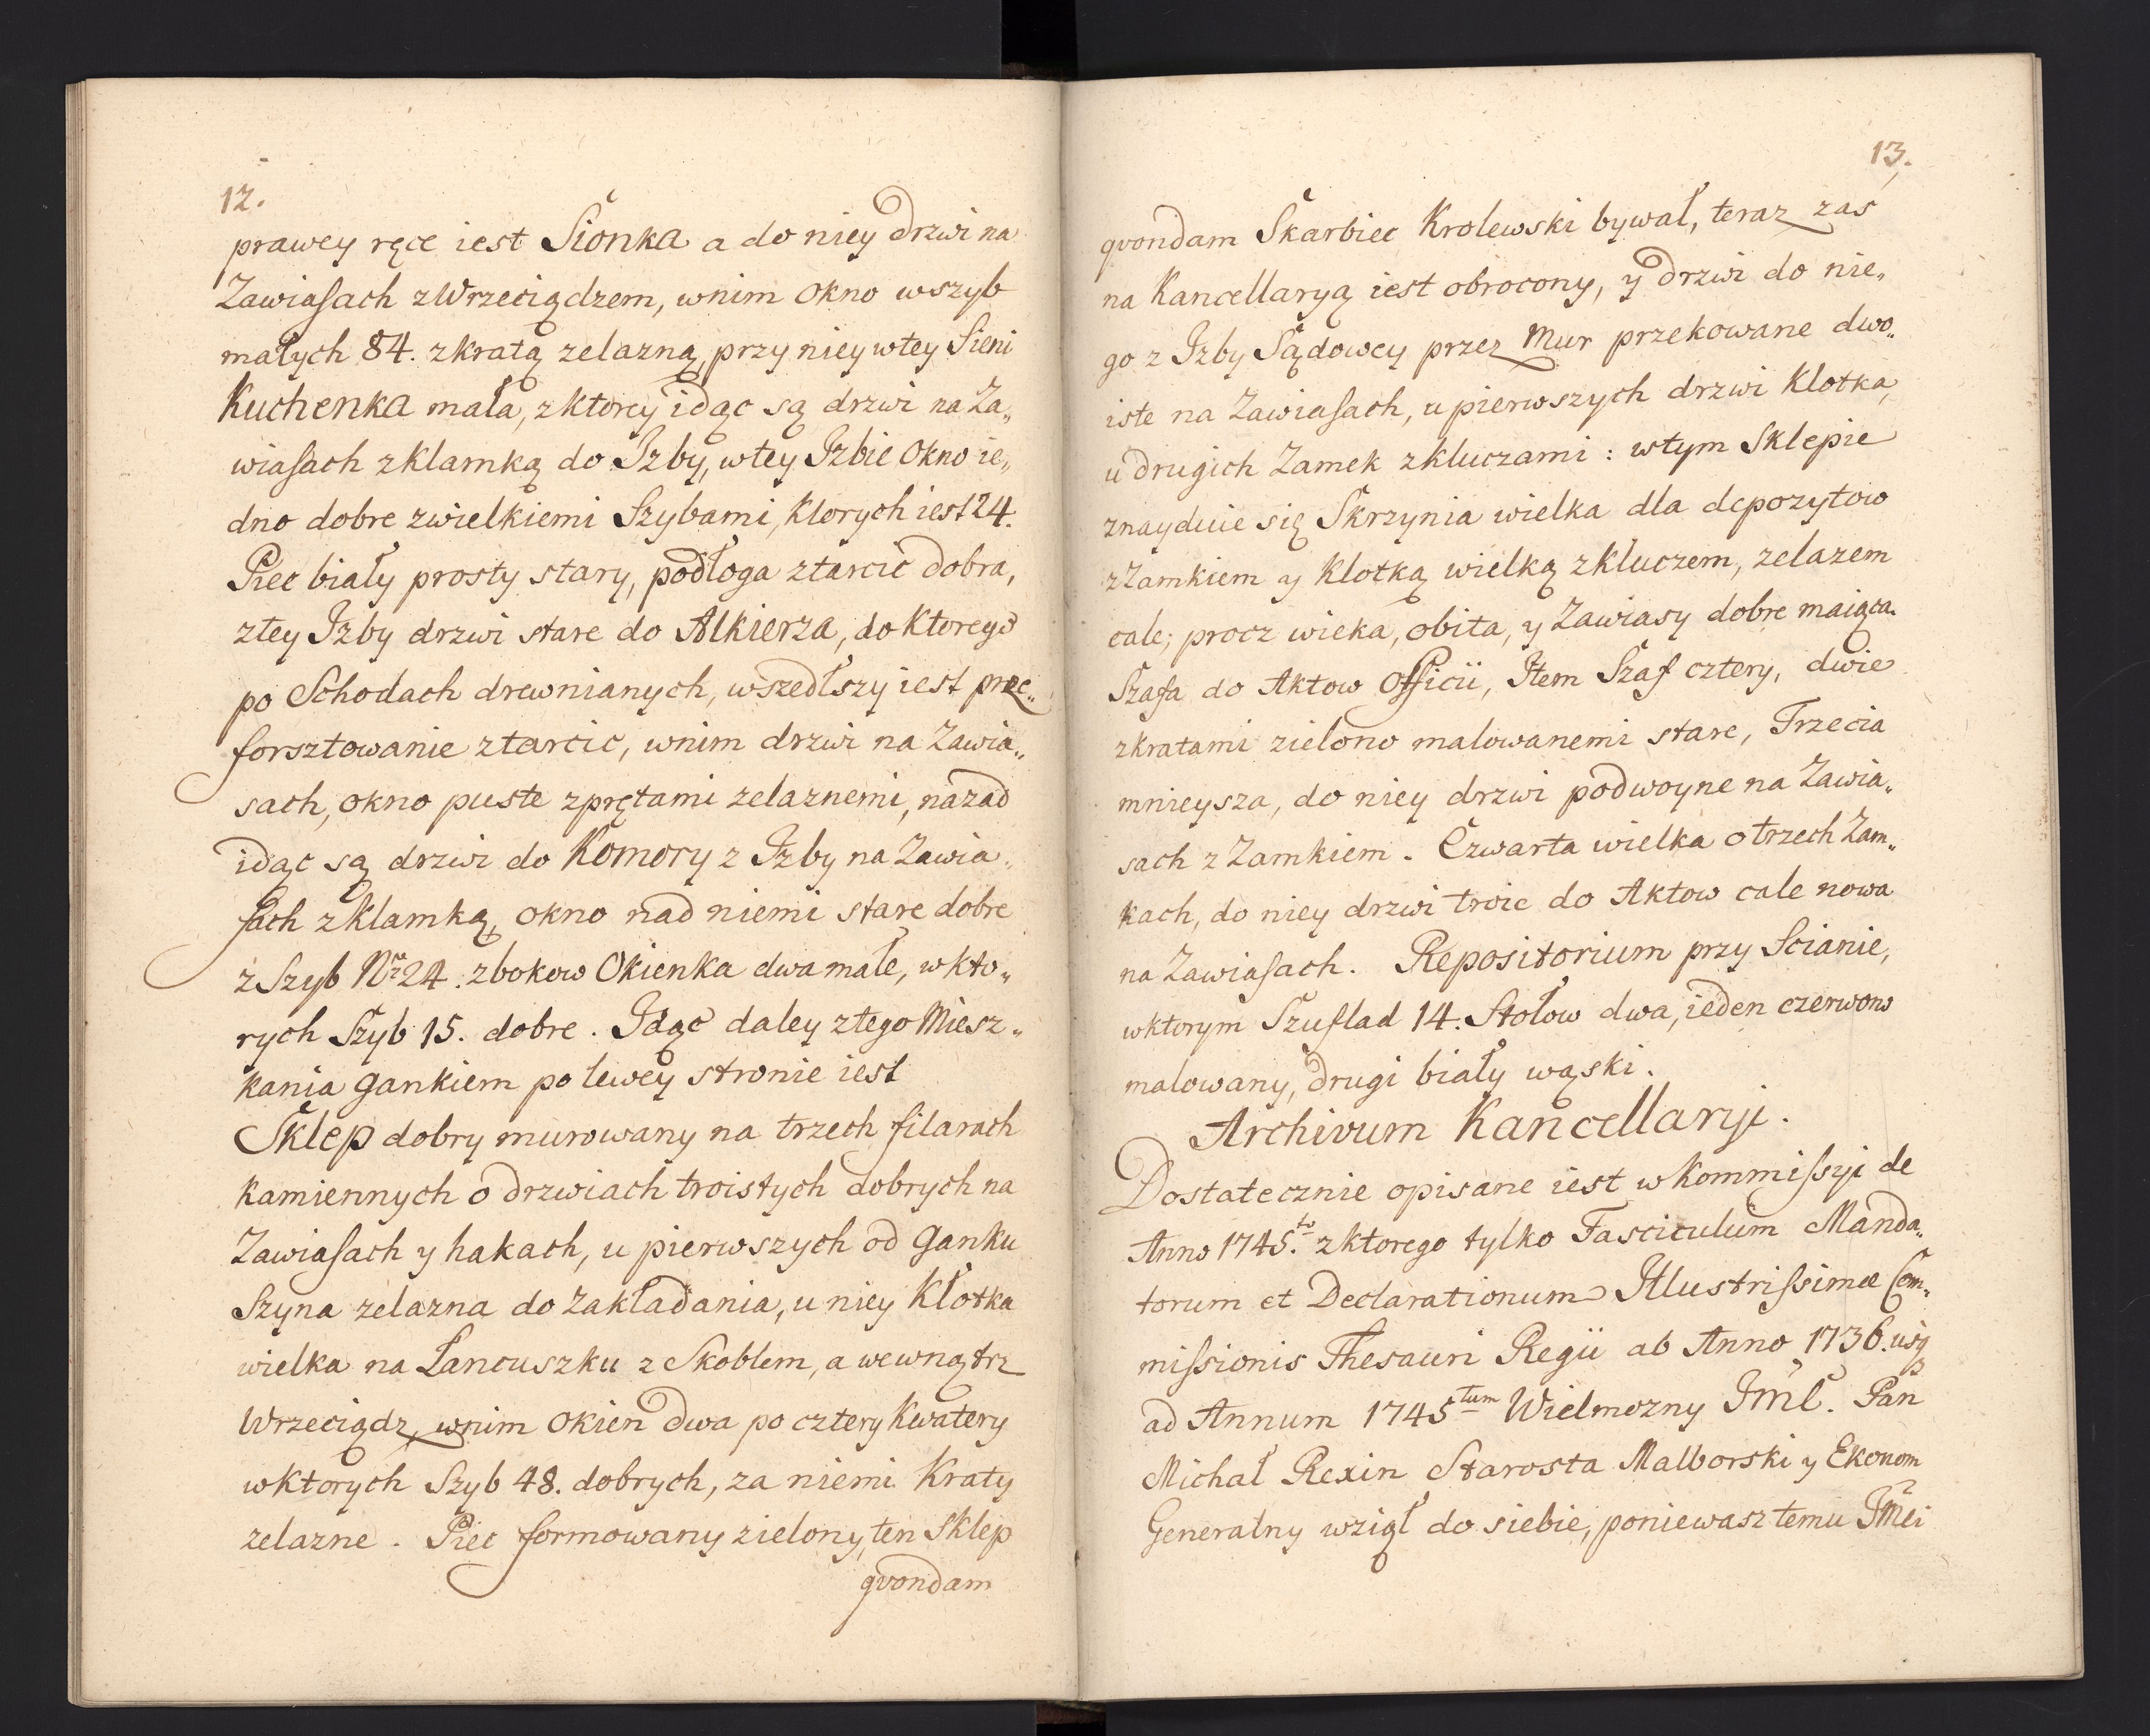 12.
prawey ręce iest Sionka a do niey drzwi na
Zawiasach z Wrzeciądzem, wnim okno w szyb
małych 84. zkratą zelazną, przy niey wtey Sieni
Kuchenka mała, z ktorey idąc są drzwi na Za„
wiasach z klamką do Izby, wtey Izbie Okno ie„
dno dobre zwielkiemi Szybami, ktorych iest 24.
Piec biały prosty stary, podłoga ztarcic dobra,
ztey Izby drzwi stare do Alkierza, do ktorego
po Schodach drewnianych, wszedłszy iest prze„
forsztowanie ztarcic, wnim drzwi na Zawia„
sach, okno puste zprętami zelaznemi, nazad
idąc są drzwi do Komory z Izby na Zawia„
sach z klamką, okno nad niemi stare dobre
z Szyb Nro 24. zbokow Okienka dwa małe, w kto„
rych Szyb 15. dobre. Idąc daley ztego Miesz„
kania gankiem po lewey stronie iest
Sklep dobry murowany na trzech filarach
kamiennych o drzwiach troistych dobrych na
Zawiasach y hakach, u pierwszych od Ganku
Szyna zelazna do Zakładania, u niey Kłotka
wielka na Łancuszku z Skoblem, a wewnątrz
Wrzeciądz, wnim Okien dwa po cztery Kwatery
wktorych Szyb 48. dobrych, za niemi Kraty
zelazne. Piec formowany zielony, ten Sklep
qvondam
13.
qvondam Skarbiec Krolewski bywał, teraz zas
na Kancellaryą iest obrocony, y drzwi do nie„
go z Izby Sądowey przez Mur przekowane dwo„
iste na Zawiasach, u pierwszych drzwi Klotka,
u drugich Zamek z kluczami: wtym Sklepie
znayduie się Skrzynia wielka dla depozytow
z Zamkiem y Klotką wielką z kluczem, zelazem
cale, procz wieka, obita, y Zawiasy dobre maiąca.
Szafa do Aktow Officii, Item Szaf cztery, dwie
zkratami zielono malowanemi stare, Trzecia
mnieysza, do niey drzwi podwoyne na Zawia„
sach z Zamkiem. Czwarta wielka o trzech Zam„
kach, do niey drzwi troie do Aktow cale nowa
na Zawiasach. Repositorium przy Scianie,
wktorym Szuflad 14. Stołow dwa, ieden czerwono
malowany, drugi biały wąski.
Archivum Kancellaryi.
Dostatecznie opisane iest w Kommissyi de
Anno 1745.to zktorego tylko Fasciculum Manda„
torum et Declarationum Illustrissimæ Com„
missionis Thesauri Regii ab Anno 1736. usq
ad Annum 1745tum Wielmozny JmC. Pan
Michał Rexin Starosta Malborski y Ekonom
Generalny wziął do siebie, poniewasz temu JMci